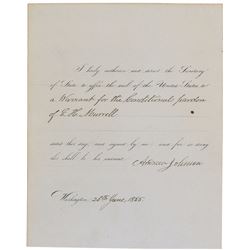 I hereby authorize and direct the Secretary
of State to affix the seal of the United States to
a Warrant for the Conditional pardon
of E. H. Murrell
dated this day, and signed by me: and for so doing
this shall be his warrant.
Andrew Johnson
Washington 28th June, 1866.